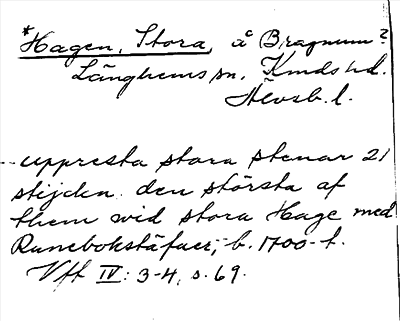 *Hagen, Stora, å Bragnum?
Långhems sn, Kinds hd.
Älvsb. l.
--uppresta stora stenar 21
stycken den största af
them wid stora Hage med
Runebokstäfwer; b. 1700-t.
Vff IV: 3-4, s. 69.